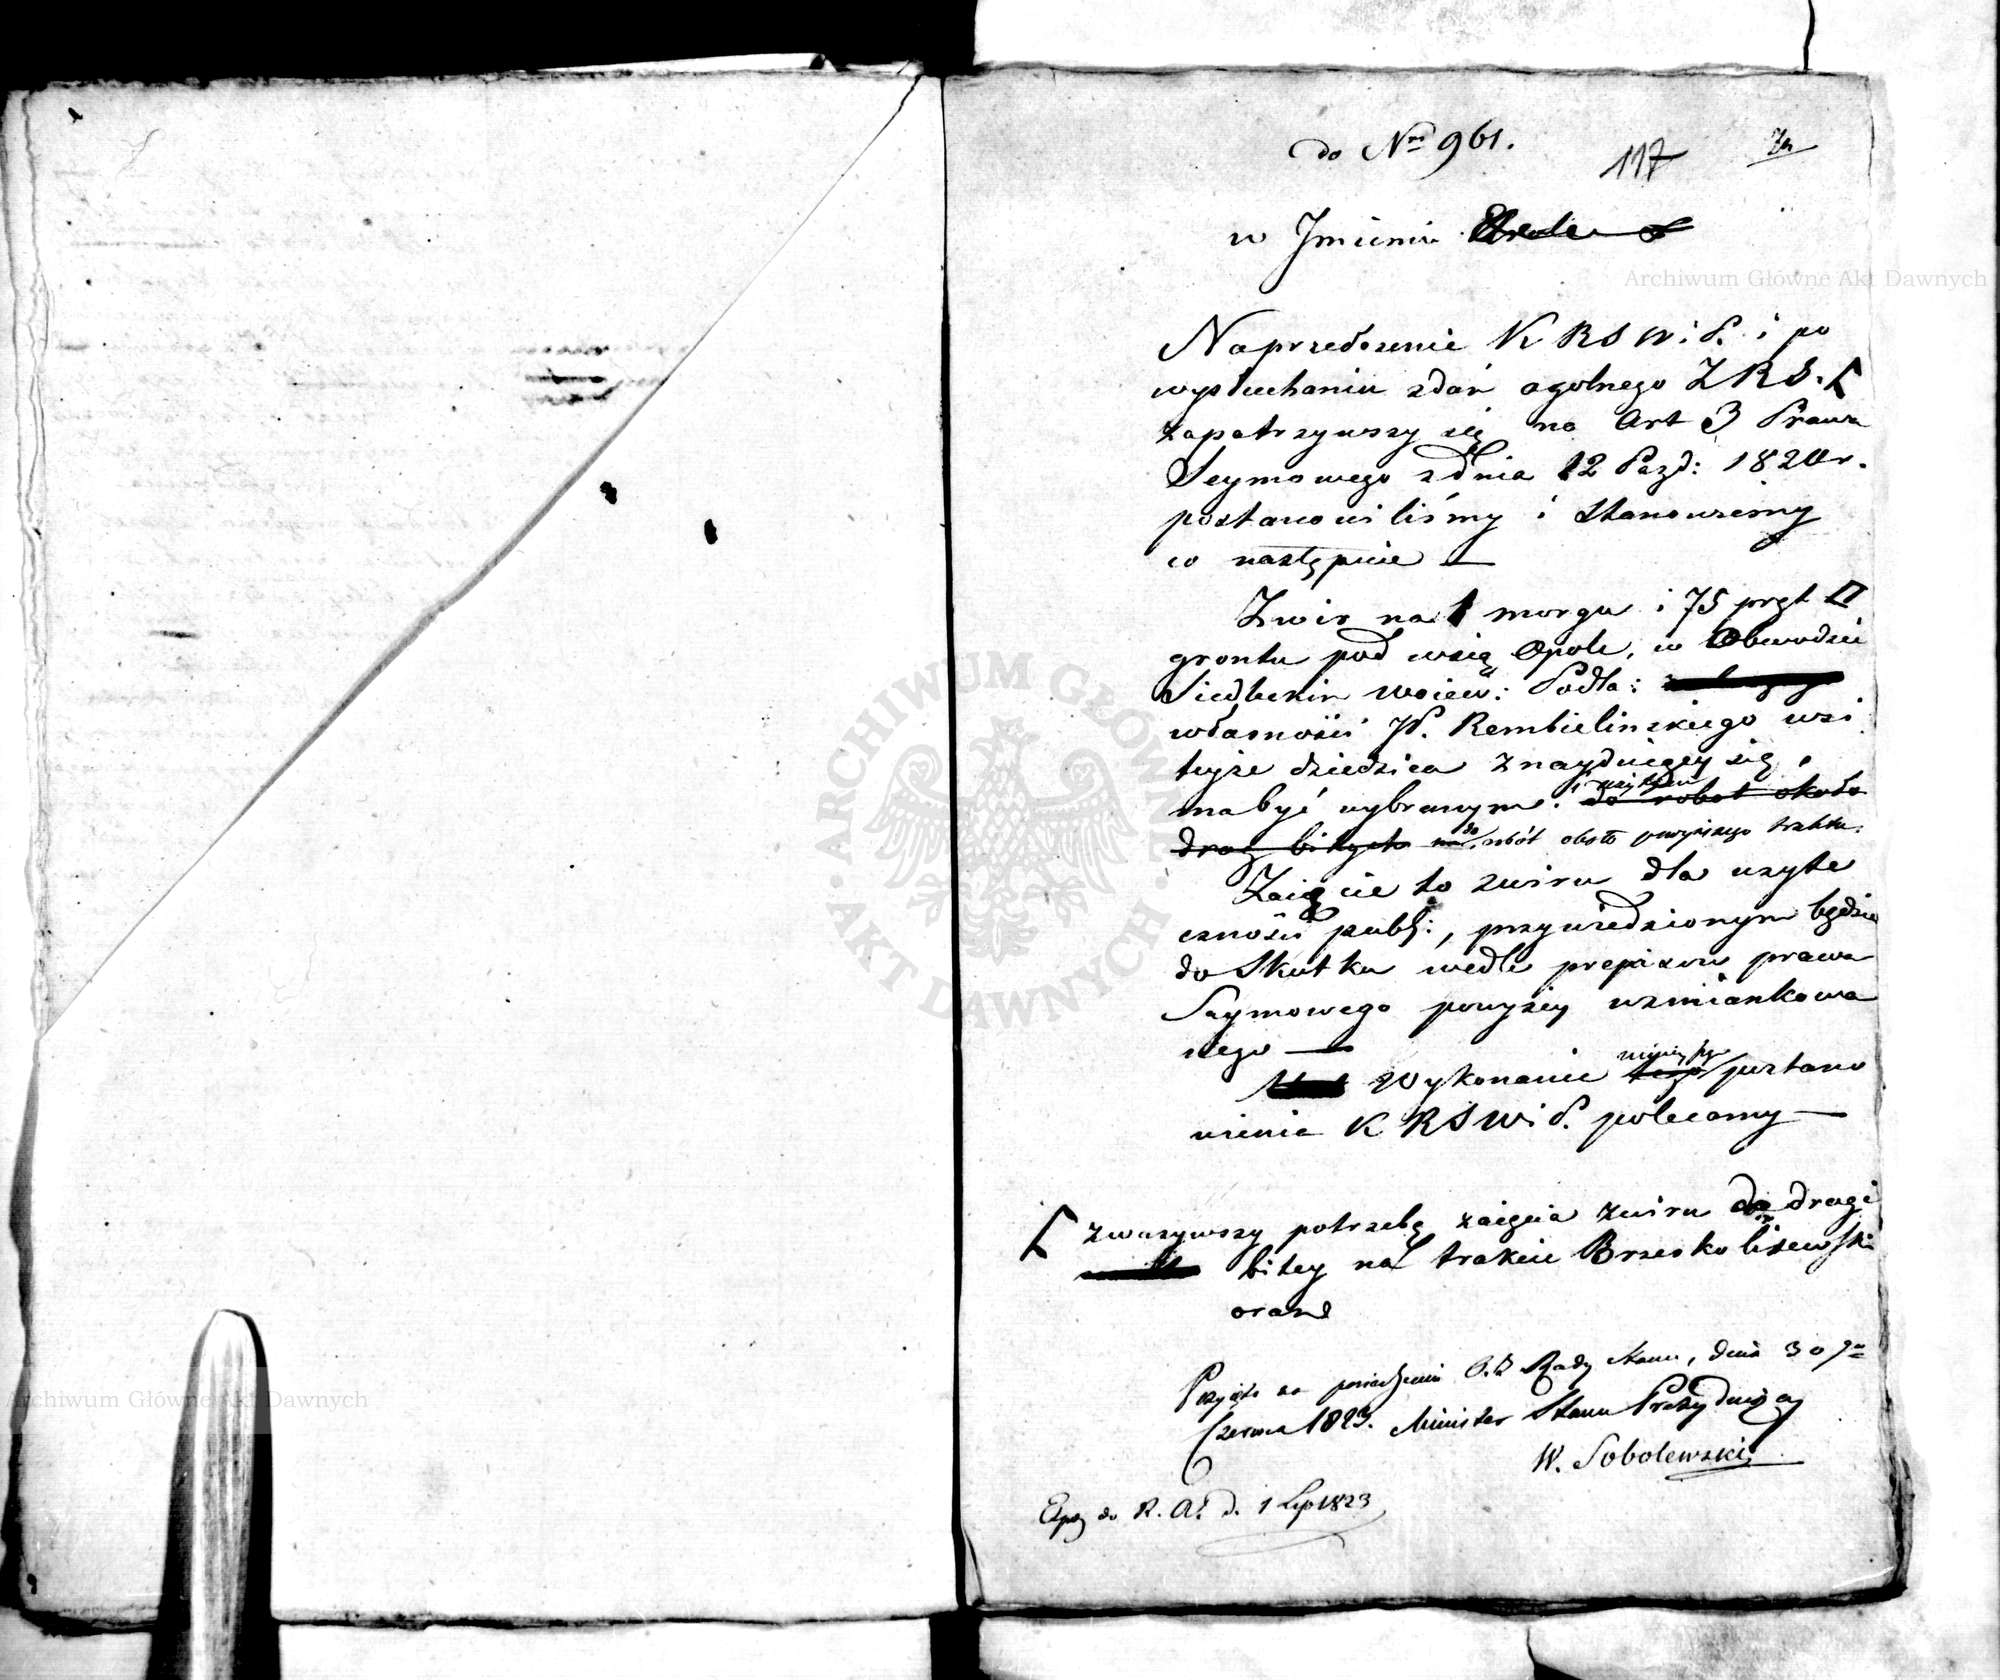 do Nro 961.
117
w Jmieniu
Archiwum Główne Akt Dawnych
Na przedożenie K R S W i P. i po
wysłuchaniu zdań ogolnego Z R S. [
zapatrzywszy się na Art 3 Prawa
Seymowego z dnia 12 Pazd: 1820 r.
postanowiliśmy i stanowiemy
co następuie —
Zwir na 1 morgu i 75 pręt □
grontu pod wsią Opole, w Obwodzie
Siedleckim Woiew: Podla:
własności W. Rembielinskiego wsi
teyże dziedzica znayduiący się,
ma być wybranym i użytym do robot około
drog bitych do robót około powyższego traktu.
Zaięcie to zwiru dla użyte
czności publ:, przywiedzionym będzie
do Skutku wedle przepisow prawa
Seymowego powyżey wzmiankowa
nego —
Wykonanie ninieyszego postano
wienia K R S W i P. polecamy —
[ zwazywszy potrzebę zaięcia zwiru do drogi
bitey na trakcie Brzesko litewskim
oraz
Przyięto na posiedzeniu O. Z Rady Stanu, dnia 30go
Czerwca 1823. Minister Stanu Prezyduiący
W. Sobolewski
Exp do R. A. d. 1 Lip 1823
ARCHIWUM GŁÓWNE
AKT DAWNYCH
Archiwum Główne Akt Dawnych